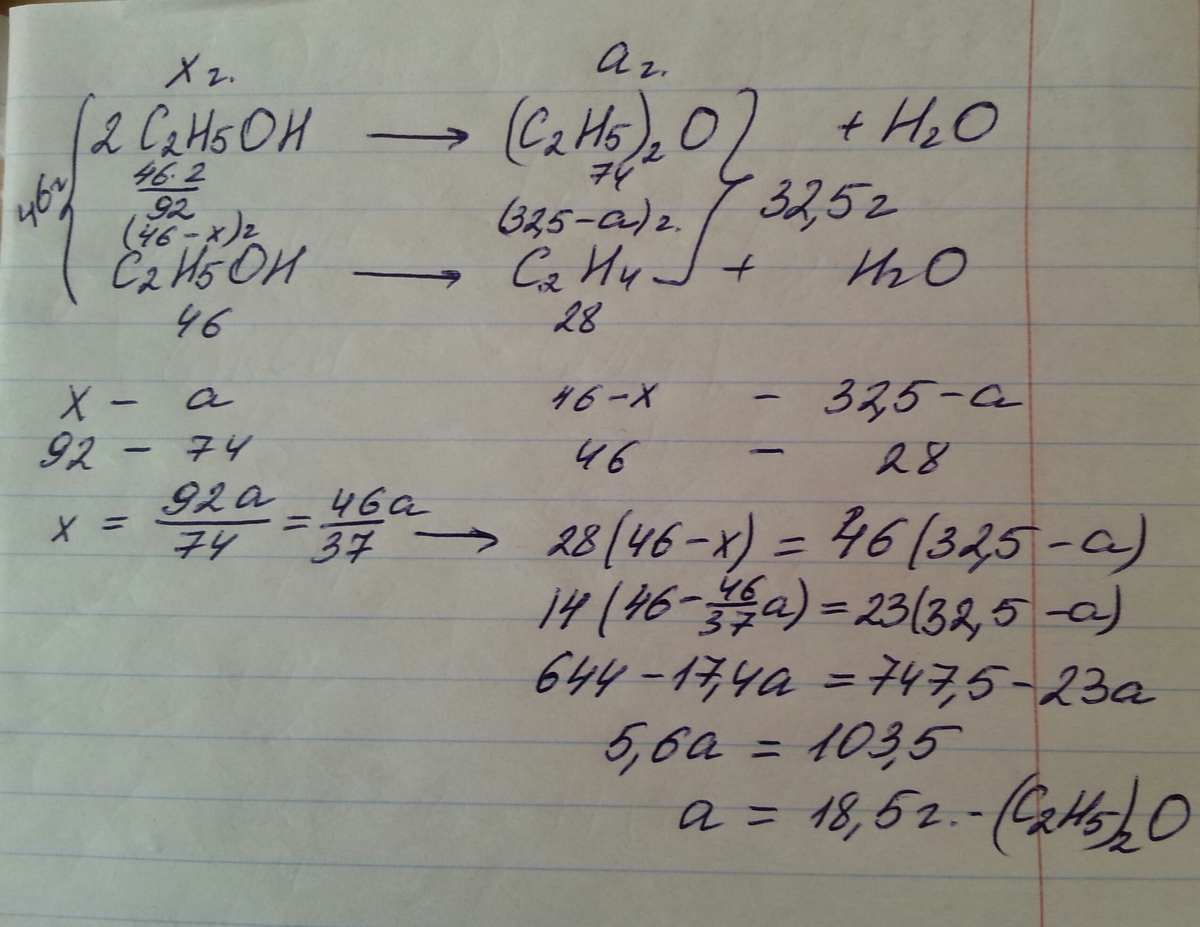 x г. а г.
2 C₂H₅OH → (C₂H₅)₂O + H₂O
46г 46·2 74
92 32,5г
(46-x)г (32,5-а)г.
C₂H₅OH → C₂H₄ + H₂O
46 28
x - а 46-x - 32,5-а
92 - 74 46 - 28
x = 92а/74 = 46а/37 → 28(46-x) = 46(32,5-а)
14(46-46/37а) = 23(32,5-а)
644-17,4а = 747,5-23а
5,6а = 103,5
а = 18,5г.-(C₂H₅)₂O